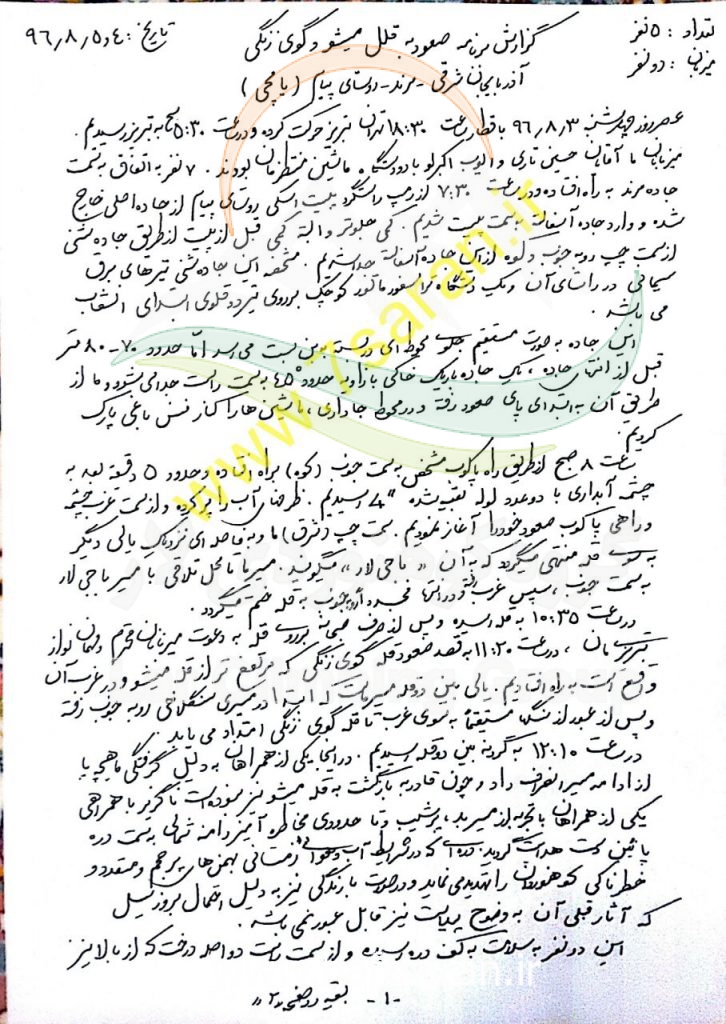 تعداد : ۵ نفر
میزبان : دو نفر
گزارش برنامه صعود به قلل میشو و گوی زنگی
تاریخ : ۴و۵ر۸ر۹۶
آذربایجان شرقی - مرند - روستای پیام ( یامچی )
عصر روز چهارشنبه ۳ر۸ر۹۶ با قطار ساعت ۱۸:۳۰ تهران تبریز حرکت کرده و در ساعت ۵:۳۰ صبح به تبریز رسیدیم .
میزبانان ما آقایان حسین تاری و ایوب اکبرلو با دو دستگاه ماشین منتظرمان بودند . ۷ نفر به اتفاق به سمت
جاده مرند به راه افتاده و در ساعت ۷:۳۰ از رمپ راستگرد پیست اسکی روستای پیام از جاده اصلی خارج
شده و وارد جاده آسفالته به سمت پیست شدیم . کمی جلوتر و البته کمی قبل از پیست از طریق جاده شنی
از سمت چپ رو به جنوب و کوه از این جاده آسفالته جدا شدیم . مشخصه این جاده شنی تیرهای برق
سیمانی در راستای آن و یک دستگاه ترانسفورماتور کوچک بر روی تیر دوقلوی ابتدای انشعاب
می باشد .
این جاده به صورت مستقیم جلوی محوطه ای در بسته به بن بست می رسد اما حدود ۷۰-۸۰ متر
قبل از انتهای جاده ، یک جاده باریک خاکی با زاویه حدود ۴۵° به سمت راست جدا می شود و ما از
طریق آن به ابتدای پای صعود رفته و در محوطه جاداری ، ماشین ها را کنار فنس باغی پارک
کردیم .
ساعت ۸ صبح از طریق راه پاکوب مشخص به سمت جنوب (کوه) براه افتاده و حدود ۵ دقیقه بعد به
چشمه آبداری با دو عدد لوله نصب شده "۴ رسیدیم . ظرفهای آب را پر کرده و از سمت غرب چشمه
و راهی پاکوب صعود خود را آغاز نمودیم . سمت چپ (شرق) ما و به فاصله ای نزدیک یالی دیگر
به سوی قله منتهی میگردد که به آن « باجی لار » میگویند . مسیر ما تا محل تلاقی با مسیر باجی لار
به سمت جنوب ، سپس غرب و در انتها مجددا رو به جنوب به قله ختم میگردد .
در ساعت ۱۰:۳۵ به قله رسیده و پس از صرف صبحانه بر روی قله به دعوت میزبانان محترم و مهمان نواز
تبریزی مان ، در ساعت ۱۱:۲۰ به قصد صعود قله گوی زنگی که مرتفع تر از قله میشو و در غرب آن
واقع است به راه افتادیم . یالی بین دو قله میباشد که ابتدا در مسیری سنگلاخی رو به جنوب رفته
و پس از عبور از سنگها مستقیماً به سوی غرب تا قله گوی زنگی امتداد می یابد .
در ساعت ۱۲:۱۰ به گردنه بین دو قله رسیدیم . در اینجا یکی از همراهان به دلیل گرفتگی ماهیچه پا
از ادامه مسیر انصراف داد و چون قادر به بازگشت به قله میشو نیز نبوده است ناگزیر با همراهی
یکی از همراهان با تجربه از مسیر بد ، پرشیب و تا حدودی مخاطره آمیز دامنه شمالی به سمت دره
پائین دست هدایت گردید . دره ای که در شرایط آب و هوایی زمستانی بهمن های پر حجم و متعدد و
خطرناکی کوهنوردان را تهدید می نماید و در صورت بارندگی نیز به دلیل احتمال بروز سیل
که آثار قبلی آن به وضوح پیداست نیز قابل عبور نمی باشد .
این دو نفر به سلامت به کف دره رسیده و از سمت راست دو اصله درخت که از بالا نیز
-۱- بقیه در صفحه ۲ »
www.7saran.ir